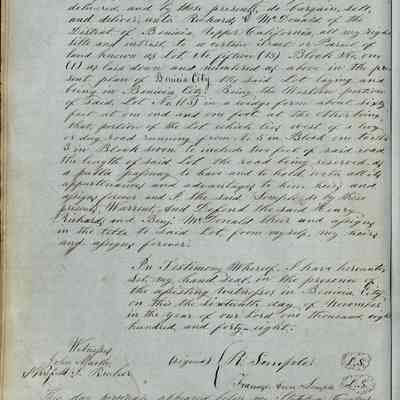 delivered, and by these presents, do bargain, sell,
and deliver, unto Richard & McDonald of the
District of Benicia Upper California, all my right
title and interest, to a certain Tract or Parcel of
land known as Lot No fifteen (15) Block No. one
(1) as laid down and established as above in the pre-
sent plan of Benicia City. the said Lot laying and
being in Benicia City. Being the Western portion
of said, Lot No (15) in a wedge form about sixty
feet at one end and one foot at the other being
that portion of the Lot which lies west of a
or dray road running from to 5 in Block one to
5 in Block seven to include two feet of said road
the length of said Lot the road being reserved as
a public passway to have and to hold with all its
appurtenances and advantages to them heirs and
assigns forever and I the said Semple do by these
presents, Warrent, and Defend the said Henry,
Richard, and Benj. McDonald their and assigns
in the title to said Lot from myself, my heirs
and assigns forever.
In Testimony Whereof. I have hereunto
set, my hand, Seal, in the presence of
the assisting witnesses in Benicia City.
on this the Sixteenth day of November
in the year of our Lord one thousand eight
hundred, and forty-eight.
Witnesses
John
(signed) R Semple (L.S.)
Frances Ann Semple (L.S.)
The day personally appeared before me Stephen Cooper